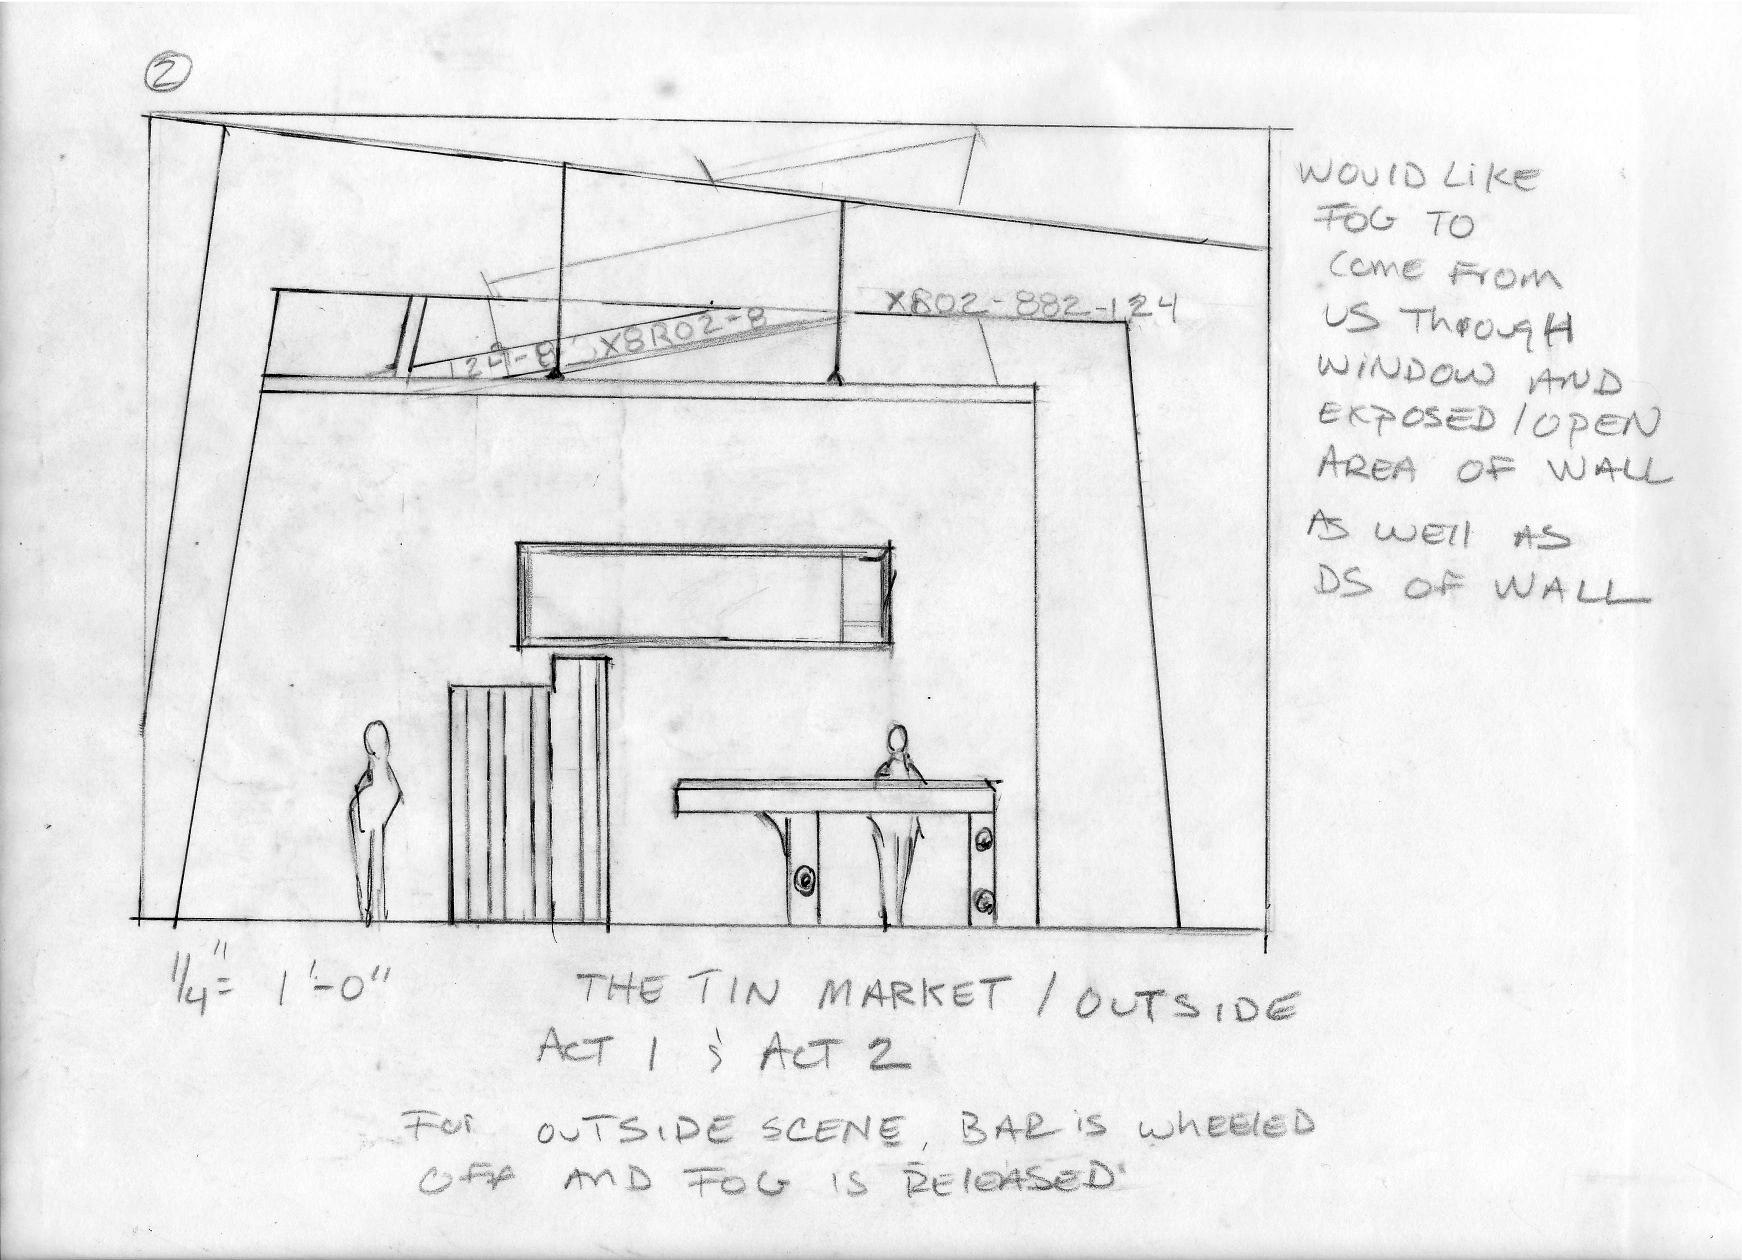 2
WOULD LIKE
FOG TO
COME FROM
US THROUGH
WINDOW AND
EXPOSED / OPEN
AREA OF WALL
AS WELL AS
DS OF WALL
X802-882-124
124-8 X8R02-8
1/4" = 1'-0"
THE TIN MARKET / OUTSIDE
ACT 1 & ACT 2
FOR OUTSIDE SCENE, BAR IS WHEELED
OFF AND FOG IS RELEASED